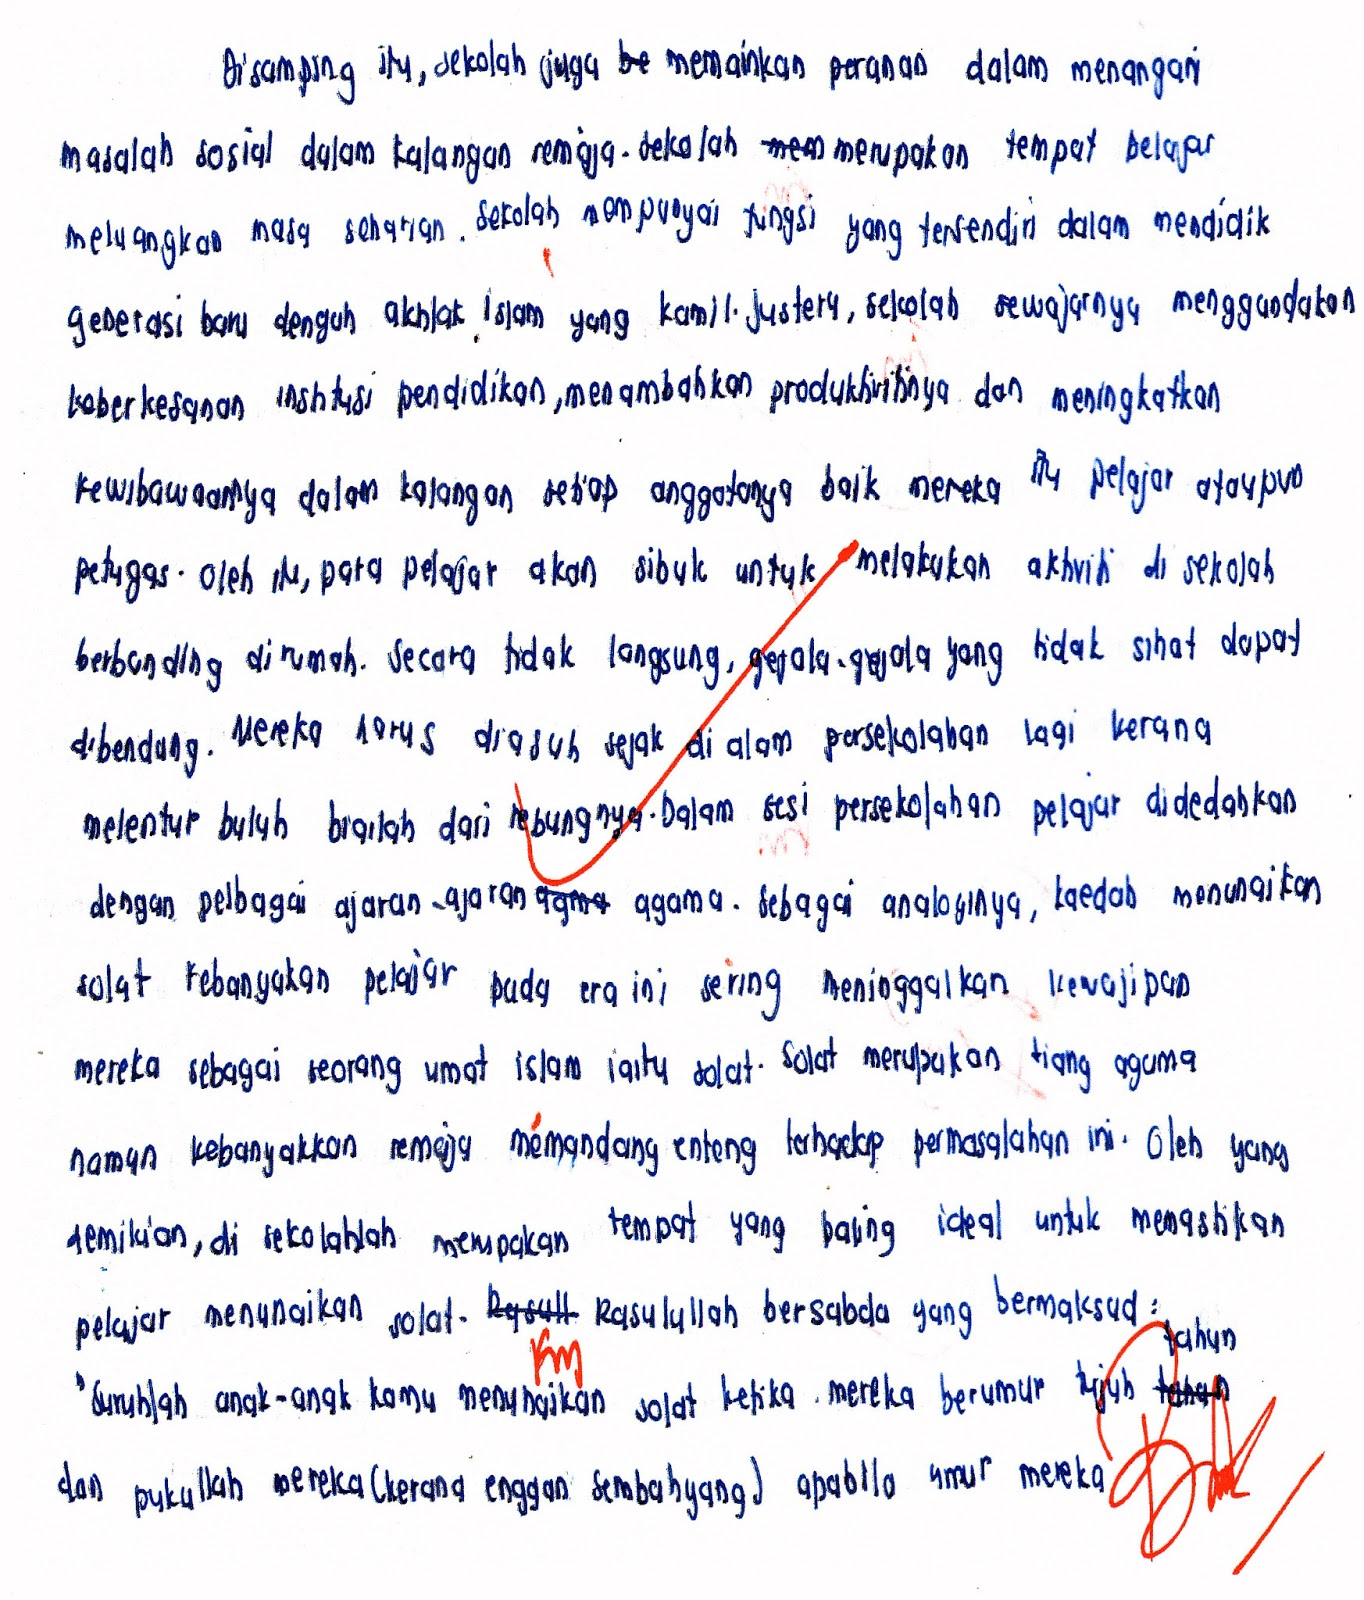 Disamping itu, sekolah juga be memainkan peranan dalam menangani
masalah sosial dalam kalangan remaja. sekolah mem merupakan tempat belajar
meluangkan masa seharian. sekolah mempunyai fungsi yang tersendiri dalam mendidik
generasi baru dengan akhlak islam yang kamil. Justeru, sekolah sewajarnya menggandakan
keberkesanan institusi pendidikan, menambahkan produktivitinya dan meningkatkan
kewibawaannya dalam kalangan setiap anggotanya baik mereka itu pelajar ataupun
petugas. Oleh itu, para pelajar akan sibuk untuk melakukan aktiviti di sekolah
berbanding di rumah. Secara tidak langsung, gejala-gejala yang tidak sihat dapat
dibendung. Mereka harus diasuh sejak di alam persekolahan lagi kerana
melentur buluh biailah dari rebungnya. Dalam sesi persekolahan pelajar didedahkan
dengan pelbagai ajaran-ajaran agma agama. Sebagai analoginya, kaedah menunaikan
solat kebanyakan pelajar pada era ini sering meninggalkan kewajipan
mereka sebagai seorang umat islam iaitu solat. Solat merupakan tiang agama
namun kebanyakkan remaja memandang enteng terhadap permasalahan ini. Oleh yang
demikian, di sekolahlah merupakan tempat yang paling ideal untuk memastikan
pelajar menunaikan solat. Rasull Rasulullah bersabda yang bermaksud :
tahun
"Suruhlah anak-anak kamu menunaikan solat ketika mereka berumur tujuh tahun
dan pukullah mereka (kerana enggan sembahyang) apabila umur mereka